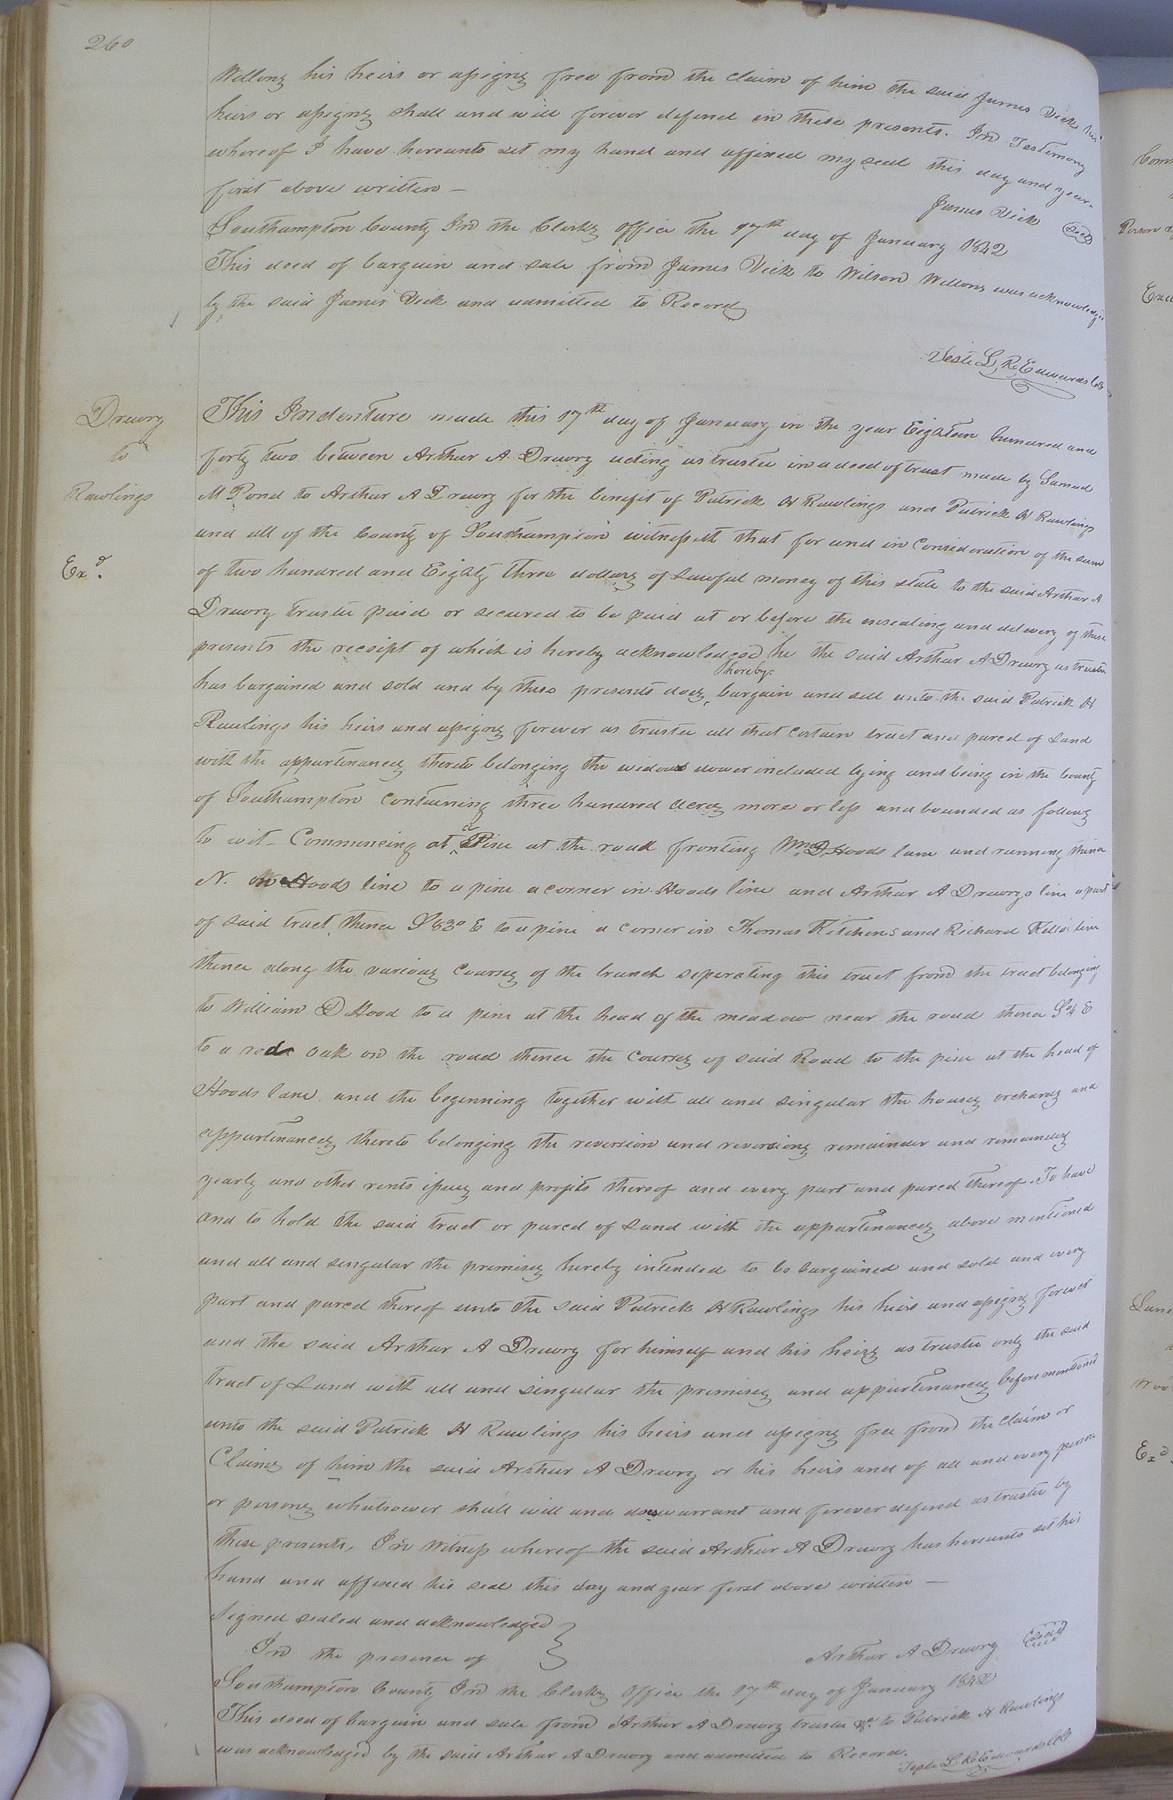 260
Wellons his heirs or assigns free from the claim of him the said James Vick his
heirs or assigns shall and will forever defend in these presents. In Testimony
whereof I have hereunto set my hand and affixed my seal this day and year
first above written —
James Vick Seal
Southampton County In the Clerks office the 17th day of January 1842
This deed of bargain and sale from James Vick to Wilson Wellons was acknowledged
by the said James Vick and admitted to Record
Teste L. R. Edwards Clk
Drewry
to
Rawlings
Exd.
This Indenture made this 17th day of January in the year Eighteen hundred and
forty two between Arthur A Drewry acting as trustee in a deed of trust made by Samuel
M Pond to Arthur A Drewry for the benefit of Patrick H Rawlings and Patrick H Rawlings
and all of the County of Southampton witnesseth that for and in Consideration of the sum
of two hundred and Eighty three dollars of Lawful money of this state to the said Arthur A
Drewry trustee paid or secured to be paid at or before the ensealing and delivery of these
presents the receipt of which is hereby acknowledged he the said Arthur A Drewry as trustee
has bargained and sold and by these presents does hereby bargain and sell unto the said Patrick H
Rawlings his heirs and assigns forever as trustee all that certain tract and parcel of Land
with the appurtenances thereto belonging the widows dower included lying and being in the County
of Southampton Containing three hundred Acres more or less and bounded as follows
to wit - Commencing at a Pine at the road fronting Wm D Hoods lane and running thence
N. on Hoods line to a pine a corner in Hoods line and Arthur A Drewrys line a part
of said tract, thence S 83° E to a pine a corner in Thomas Kitchens and Richard line
thence along the various Courses of the branch seperating this tract from the tract belonging
to William D Hood to a pine at the head of the meadow near the road thence S 4 E
to a red oak on the road thence the Courses of said Road to the pine at the head of
Hoods lane and the beginning together with all and singular the houses orchards and
appurtenances thereto belonging the reversion and reversions remainder and remainders
yearly and other rents issues and profits thereof and every part and parcel thereof. To have
and to hold the said tract or parcel of Land with the appurtenances above mentioned
and all and singular the premises hereby intended to be bargained and sold and every
part and parcel thereof unto the said Patrick H Rawlings his heirs and assigns forever
and the said Arthur A Drewry for himself and his heirs as trustee only the said
tract of Land with all and singular the premises and appurtenances before mentioned
unto the said Patrick H Rawlings his heirs and assigns free from the claim or
Claims of him the said Arthur A Drewry or his heirs and of all and every person
or persons whatsoever shall will and do warrant and forever defend as trustee by
these presents, In Witness whereof the said Arthur A Drewry has hereunto set his
hand and affixed his seal this day and year first above written —
Signed sealed and acknowledged
In the presence of
Arthur A Drewry Seal
Southampton County In the Clerks Office the 17th day of January 1842
This deed of bargain and sale from Arthur A Drewry trustee &c. to Patrick H Rawlings
was acknowledged by the said Arthur A Drewry and admitted to Record.
Teste L. R. Edwards Clk